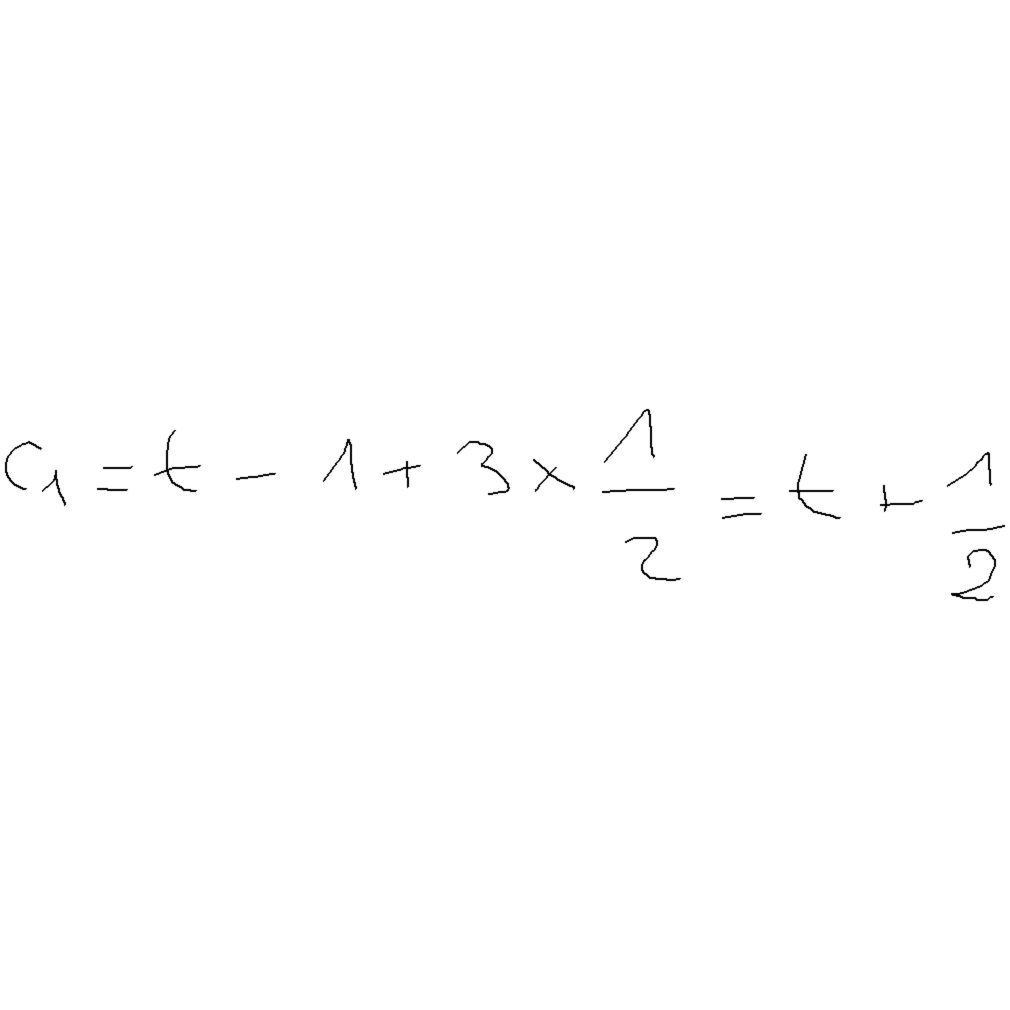 C₁ = t - 1 + 3 × 1/2 = t + 1/2